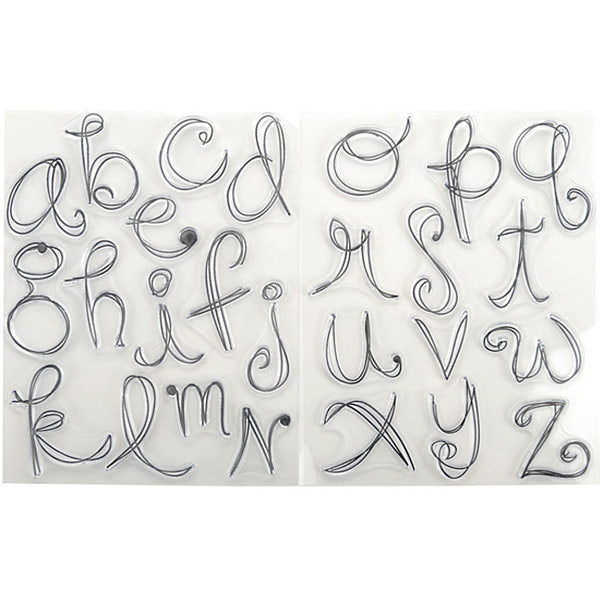 a b c d
e
g h i f j
k l m n
o p q
r s t
u v w
x y z